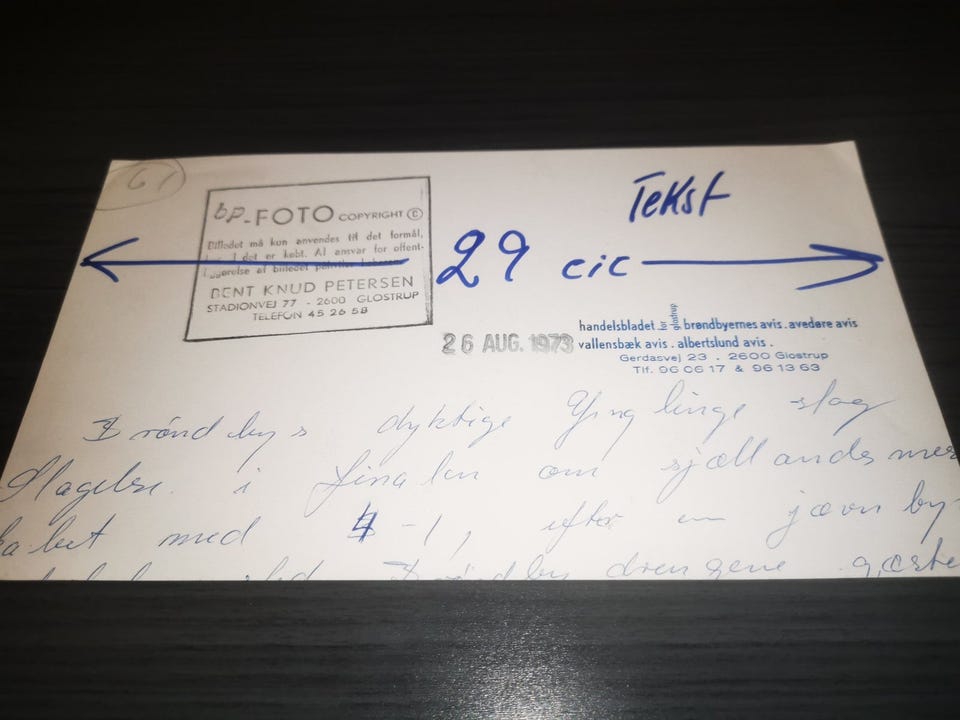 61
bp-FOTO COPYRIGHT ©
Billedet må kun anvendes til det formål,
det er købt. Al ansvar for offent-
liggørelse af billedet påhviler køberen
BENT KNUD PETERSEN
STADIONVEJ 77 - 2600 GLOSTRUP
TELEFON 45 26 58
Tekst
29 cic
26 AUG. 1973
handelsbladet for glostrup brøndbyernes avis. avedøre avis
vallensbæk avis. albertslund avis.
Gerdasvej 23 . 2600 Glostrup
Tlf. 96 06 17 & 96 13 63
Brøndbys dyktige Ynglinge slog
Slagelse i finalen om sjællandsmes
kabet med 4-1, efter en jævn by-
Brøndby drengene gæste